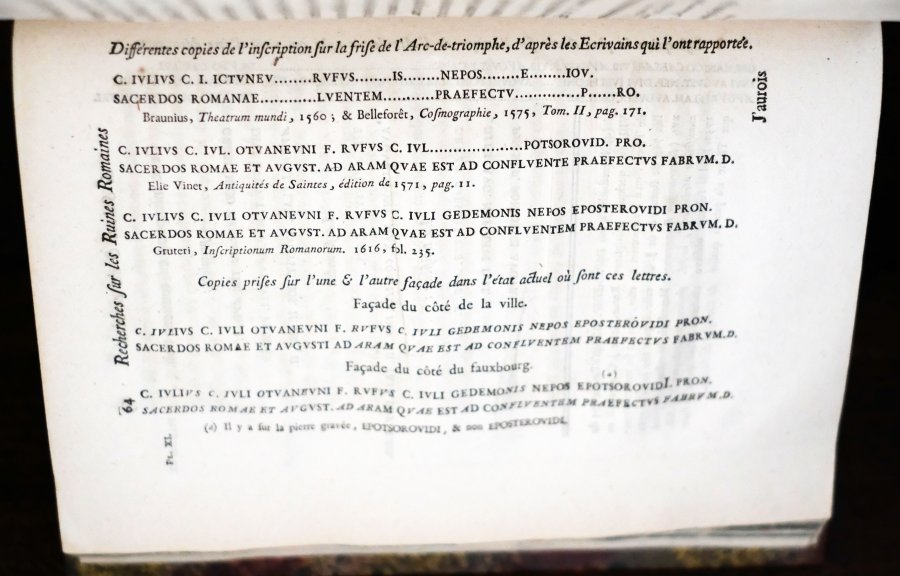 Différentes copies de l'inſcription ſur la friſe de l'Arc-de-triomphe, d'après les Ecrivains qui l'ont rapportée.
C. IVLIVS C. I. ICTVNEV........RVFVS........IS........NEPOS........E........IOV.
SACERDOS ROMANAE............LVENTEM...........PRAEFECTV..............P......RO.
Braunius, Theatrum mundi, 1560; & Belleforêt, Coſmographie, 1575, Tom. II, pag. 171.
C. IVLIVS C. IVL. OTVANEVNI F. RVFVS C. IVL....................POTSOROVID. PRO.
SACERDOS ROMAE ET AVGVST. AD ARAM QVAE EST AD CONFLVENTE PRAEFECTVS FABRVM. D.
Elie Vinet, Antiquités de Saintes, édition de 1571, pag. 11.
C. IVLIVS C. IVLI OTVANEVNI F. RVFVS C. IVLI GEDEMONIS NEPOS EPOSTEROVIDI PRON.
SACERDOS ROMAE ET AVGVST. AD ARAM QVAE EST AD CONFLVENTEM PRAEFECTVS FABRVM. D.
Gruteri, Inſcriptionum Romanorum. 1616, fol. 235.
Copies priſes ſur l'une & l'autre façade dans l'état actuel où ſont ces lettres.
Façade du côté de la ville.
C. IVLIVS C. IVLI OTVANEVNI F. RVFVS C. IVLI GEDEMONIS NEPOS EPOSTEROVIDI PRON.
SACERDOS ROMAE ET AVGVSTI AD ARAM QVAE EST AD CONFLVENTEM PRAEFECTVS FABRVM. D.
Façade du côté du fauxbourg.
(a)
C. IVLIVS C. IVLI OTVANEVNI F. RVFVS C. IVLI GEDEMONIS NEPOS EPOTSOROVIDI. PRON.
SACERDOS ROMAE ET AVGVST. AD ARAM QVAE EST AD CONFLVENTEM PRAEFECTVS FABRVM. D.
(a) Il y a ſur la pierre gravée, EPOTSOROVIDI, & non EPOSTEROVIDI.
64 Recherches ſur les Ruines Romaines
Pl. XI.
J'aurois